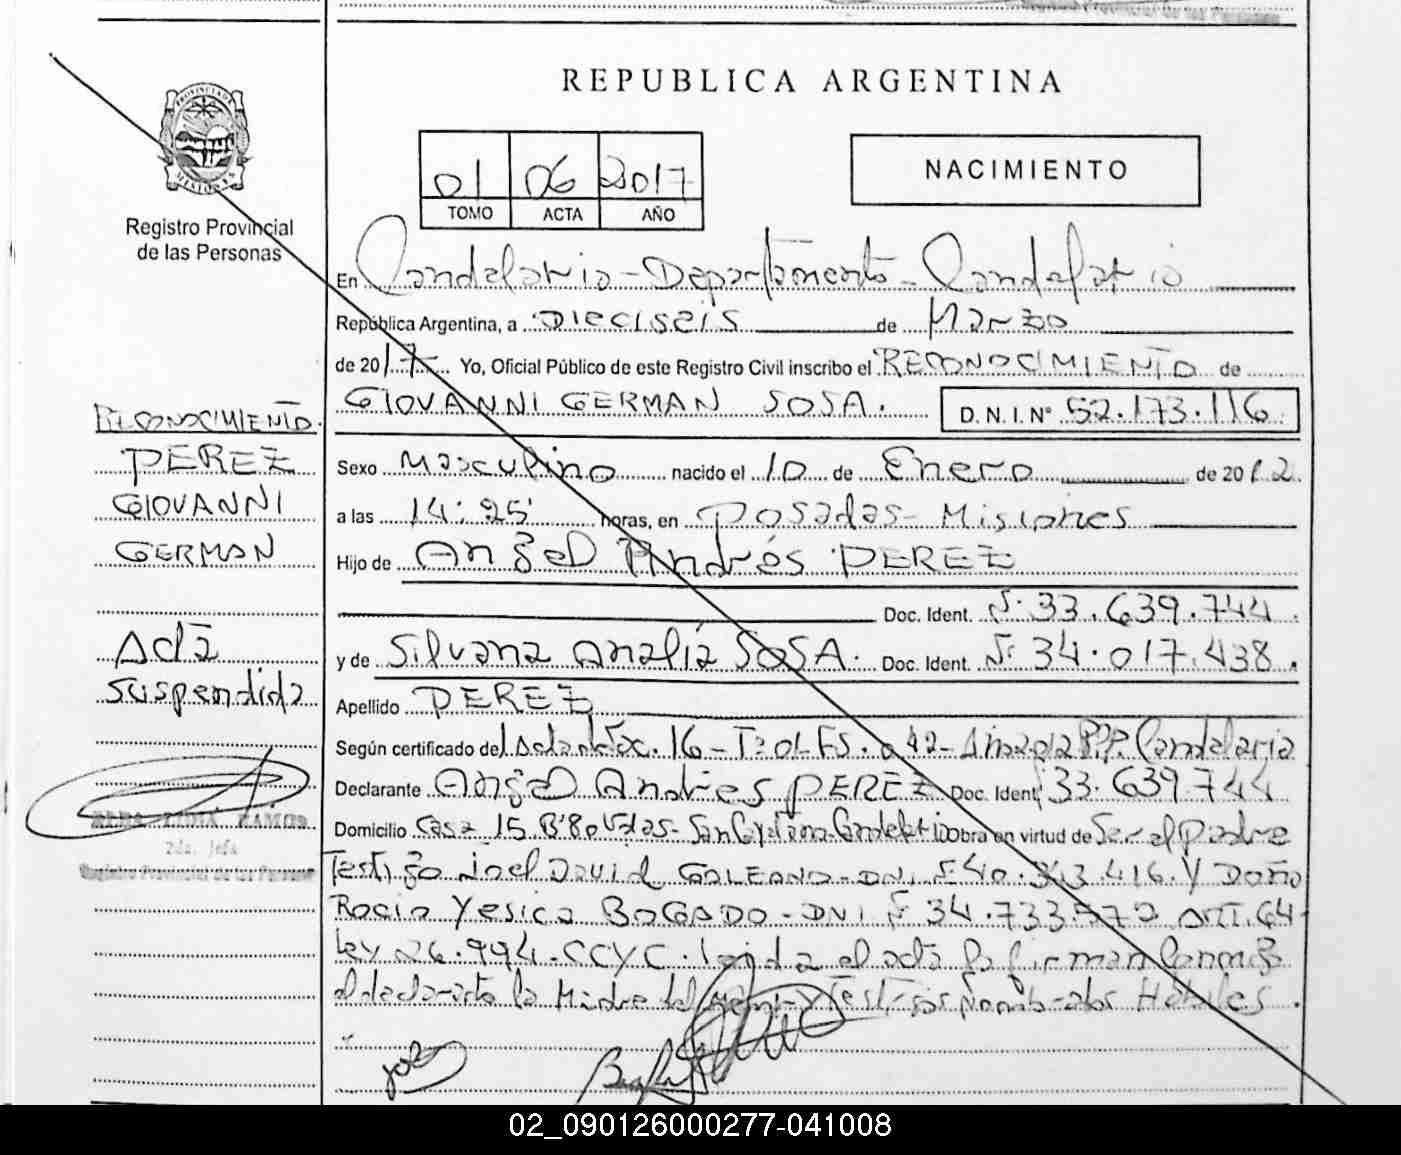 REPUBLICA ARGENTINA
PROVINCIA DE
MISIONES
Registro Provincial
de las Personas
01 06 2017
TOMO ACTA AÑO
NACIMIENTO
En Candelaria - Departamento - Candelaria
República Argentina, a DIECISEIS de Marzo
de 2017 Yo, Oficial Público de este Registro Civil inscribo el RECONOCIMIENTO de
GIOVANNI GERMAN SOSA. D.N.I. Nº 52.173.116
RECONOCIMIENTO.
PEREZ
GIOVANNI
GERMAN
Acta
suspendida
2da. Jefa
Registro Provincial de las Personas
Sexo Masculino nacido el 10 de Enero de 2012
a las 14:25' horas, en Posadas - Misiones
Hijo de Angel Andrés PEREZ
Doc. Ident. Nº 33.639.744.
y de Silvana Analía SOSA. Doc. Ident. Nº 34.017.438.
Apellido PEREZ
Según certificado del Acta 16 - Tº 01 - FS. Candelaria
Declarante Angel Andrés PEREZ Doc. Ident. 33.639.744
Domicilio Casa 15 Bº 80 Vdas - San Cayetano - Candelaria obra en virtud de Ser el Padre
Testigo Joel David GALEANO - DNI Nº 40.343.416. Y Doña
Rocio Yesica BOGADO - DNI Nº 34.733.572 Art. 64
Ley 26.994 - CCYC. Leida el acta la firman conmigo
el declarante la Madre del y Testigos Hábiles.
02_090126000277-041008